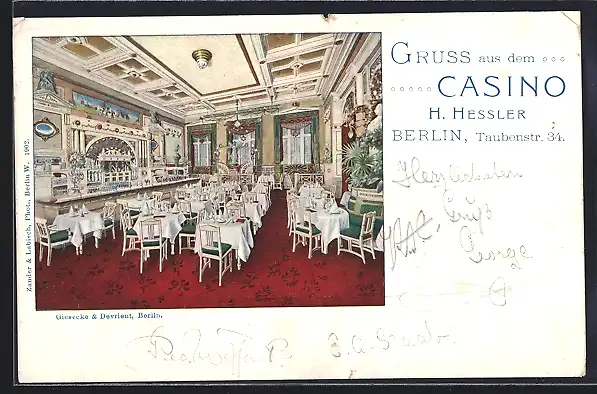 GRUSS aus dem
CASINO
H. HESSLER
BERLIN, Taubenstr. 34.
Herzlichsten
Gruß
George
Zander & Labisch, Phot., Berlin W. 1902.
Giesecke & Devrient, Berlin.